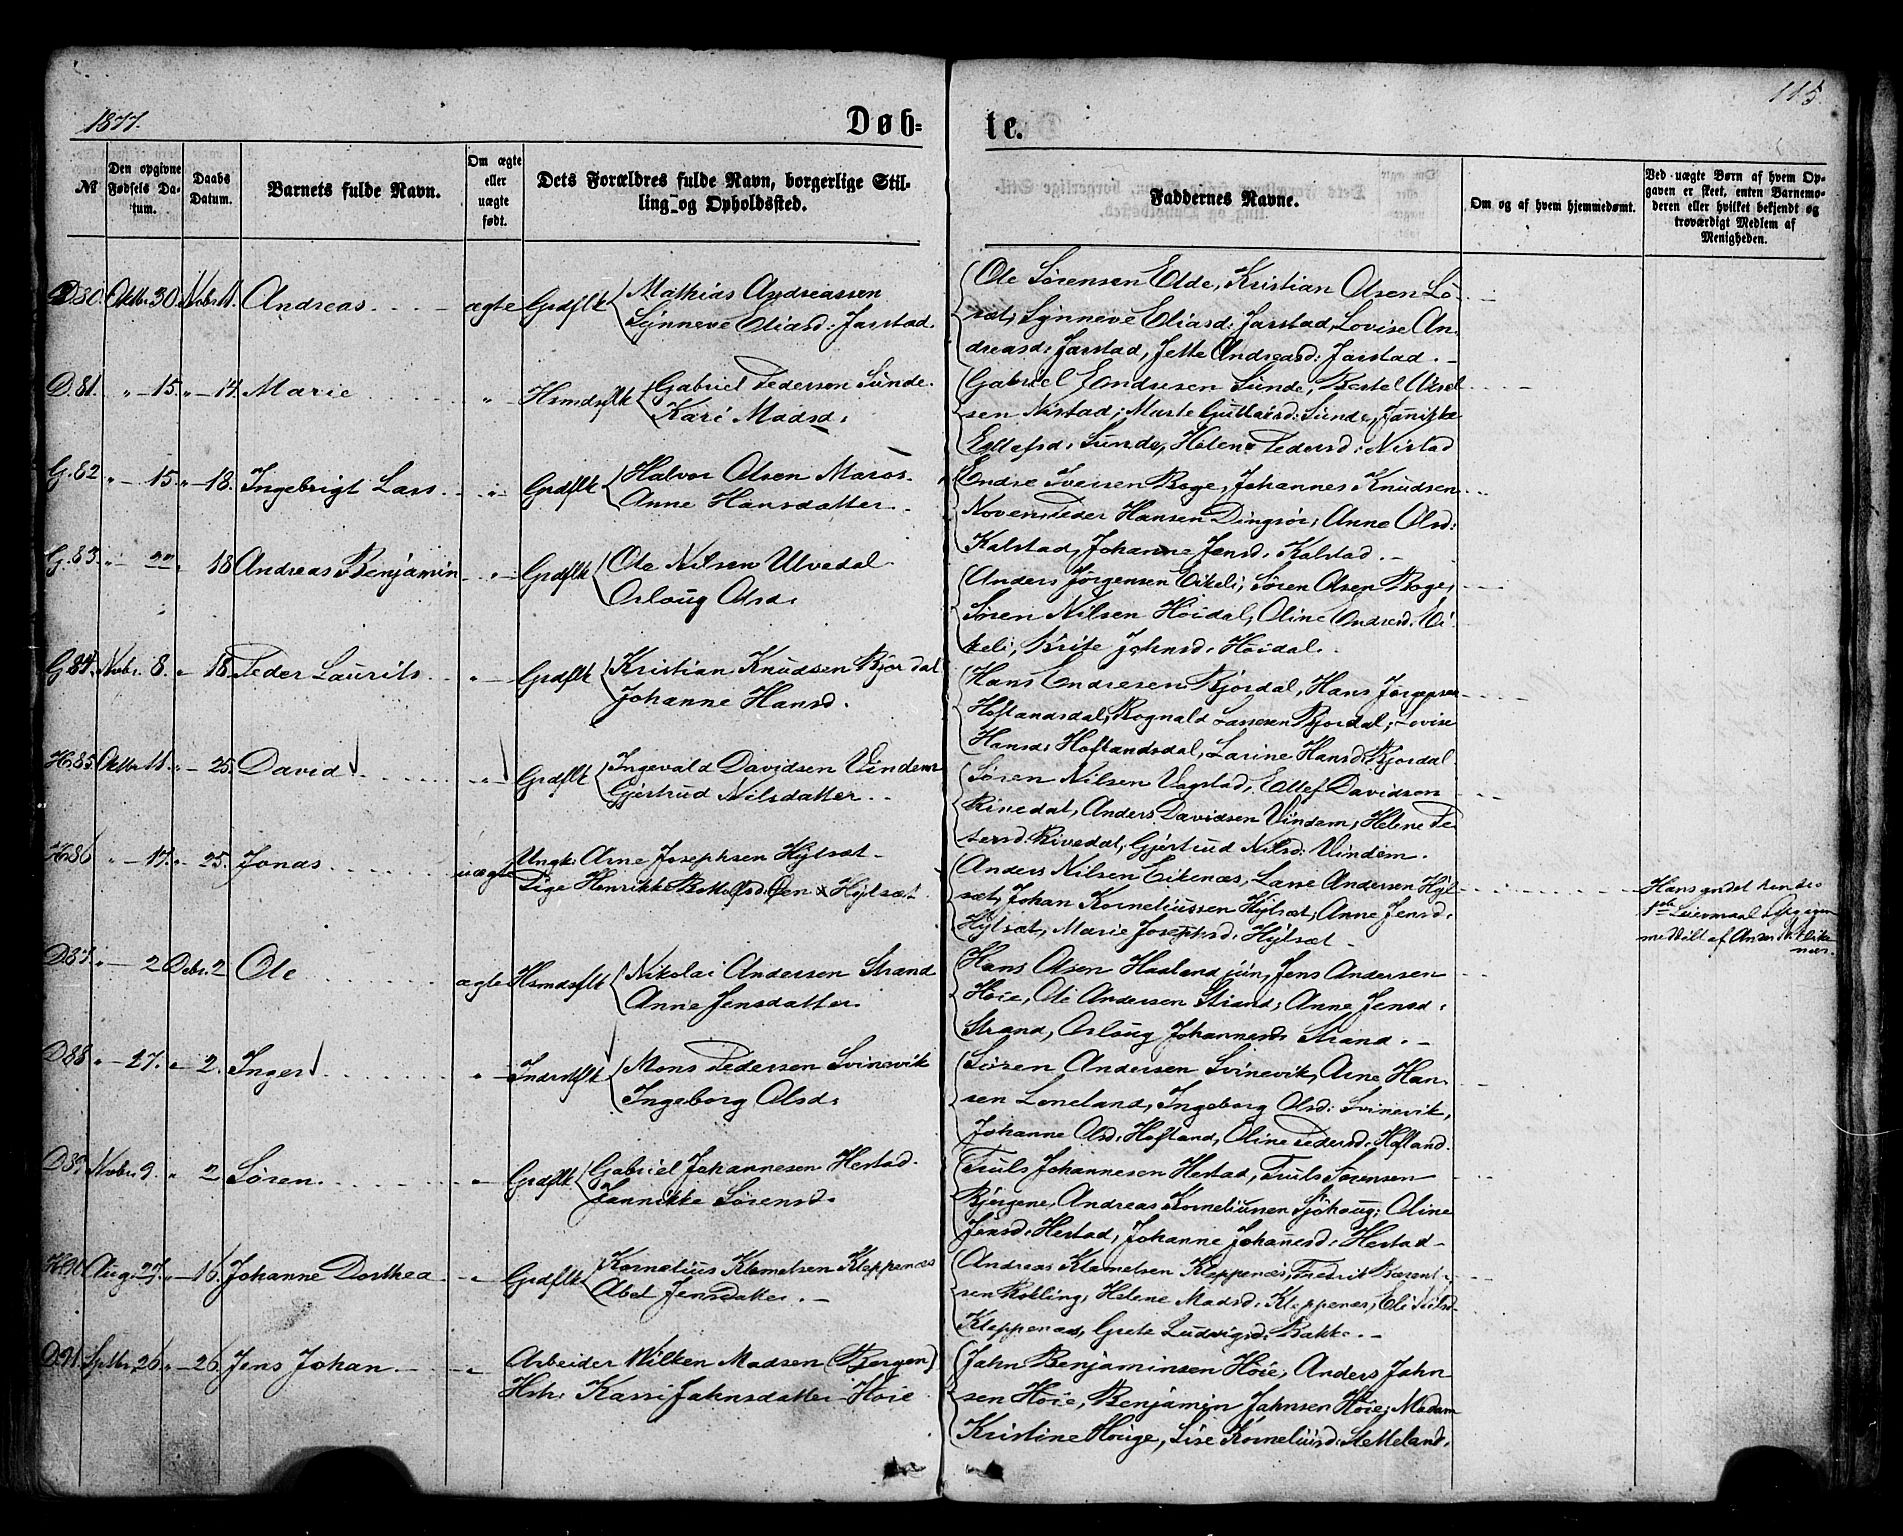 1877.
Døb=
te.
115.
№
Den opgivne Fødsels Datum.
Daabs Datum.
Barnets fulde Navn.
Om ægte eller uægte født.
Dets Forældres fulde Navn, borgerlige Stilling og Opholdssted.
Faddernes Navne.
Om og af hvem hjemmedømt.
Ved uægte Børn af hvem Opgaven er skeet, enten Barnemoderen eller hvilket bekjendt og troværdigt Medlem af Menigheden.
D.80. Oktbr. 30 Novbr. 11. Andreas ægte Grdflk Mathias Andreassen
Synneve Eliasd: Jarstad.
Ole Sørensen Elde, Kristian Olsen Lo-
sæt, Synneve Eliasd: Jarstad, Lovise An-
dreasd: Jarstad, Jette Andreasd: Jarstad. -
D.81. " - 15. " - 14. Marie " Hsmdsflk Gabriel Pedersen Sunde.
Kari Madsd:
Gabriel Endresen Sunde, Bertel Aksel-
sen Nistad, Marte Guttormsd: Sunde, Jannikke
Ellefsd: Sunde, Helene Pedersd: Nistad
G.82 " - 15. " - 18. Ingebrigt Lars " Grdflk Halvor Olsen Maros.
Anne Hansdatter.
Endre Iversen Boge, Johannes Knudsen
Noven, Peder Hansen Dingsør, Anne Olsd:
Kalstad, Johanne Jensd: Kalstad. -
G.83. " - 22 " 18 Andreas Benjamin " Grdflk Ole Nilsen Ulvedal
Orloug Olsd:
Anders Jørgensen Eikeli, Søren Olsen Boge,
Søren Nilsen Høidal, Oline Andresd: Ei-
keli, Brite Johnsd: Høidal.
G.84. Novbr. 8. " 18. Peder Laurits " Grdflk Kristian Knudsen Bjordal
Johanne Hansd.
Hans Endresen Bjordal, Hans Jørgensen
Hoflandsdal, Rognald Lassesen Bjordal, Lovise
Hansd: Hoflandsdal, Larine Hansd: Bjordal
H.85. Oktbr. 11. " - 25. David " Grdflk Ingevald Davidsen Vindem
Gjertrud Nilsdatter.
Søren Nilsen Vagstad, Ellef Davidsen
Rivedal, Anders Davidsen Vindem, Helene Pe-
dersd: Rivedal, Gjertrud Nilsd: Vindem.
H.86 " - 17. " - 25. Jonas uægte Ungk: Arne Josephsen Hylsæt -
Pige Henrikke Hylsæt
Anders Nilsen Eikenæs, Lasse Andersen Hyl-
sæt, Johan Korneliussen Hylsæt, Anne Jensd:
Hylsæt, Marie Josephsd: Hylsæt -
Hans andet hendes
1ste Leiermaal
meldt af Anders N. Eike-
næs.
D.87. " - 2 Debr. 2 Ole ægte Hsmdsflk Nikolai Andersen Strand
Anne Jensdatter
Hans Olsen Haaland jun, Jens Andersen
Høie, Ole Andersen Strand, Anne Jensd:
Strand, Orloug Johannesd: Strand. -
D88 " - 27. " 2. Inger " Indrstflk Mons Pedersen Svinevik
Ingeborg Olsd:
Søren Andersen Svinevik, Arne Han-
sen Loneland, Ingeborg Olsd: Svinevik,
Johanne Olsd: Hofland, Oline Pedersd: Hofland.
D.89. Novbr. 9. " 2 Søren. " Grdflk Gabriel Johannesen Hestad.
Jannikke Sørensd.
Truls Johannesen Hestad, Truls Sørensen
Bjergene, Andreas Korneliusen Sjøhoug, Oline
Jensd: Hestad, Johanne Johanesd: Hestad -
H.90. Aug. 27. " - 16. Johanne Dorthea " Grdflk Kornelius Klemetsen Kleppenæs
Abel Jensdatter. -
Andreas Klemetsen Kleppenæs, Fredrik Berent-
sen Kobling, Helene Madsd: Kleppenæs, Eli Nilsd.
Kleppenæs, Grete Ludvigsd: Bakke. -
D.91. Septbr. 26. " - 26. Jens Johan " Arbeider Wilken Madsen (Bergen)
Hstr: Karri Jahnsdatter Høie
Jahn Benjaminsen Høie, Anders Jahn
sen Høie, Benjamin Jahnsen Høie, Madam
Kristine Houge, Lise Korneliusd: Stetteland.